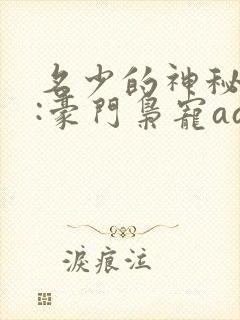 名少的神秘
:豪門梟寵ad
淚痕泣